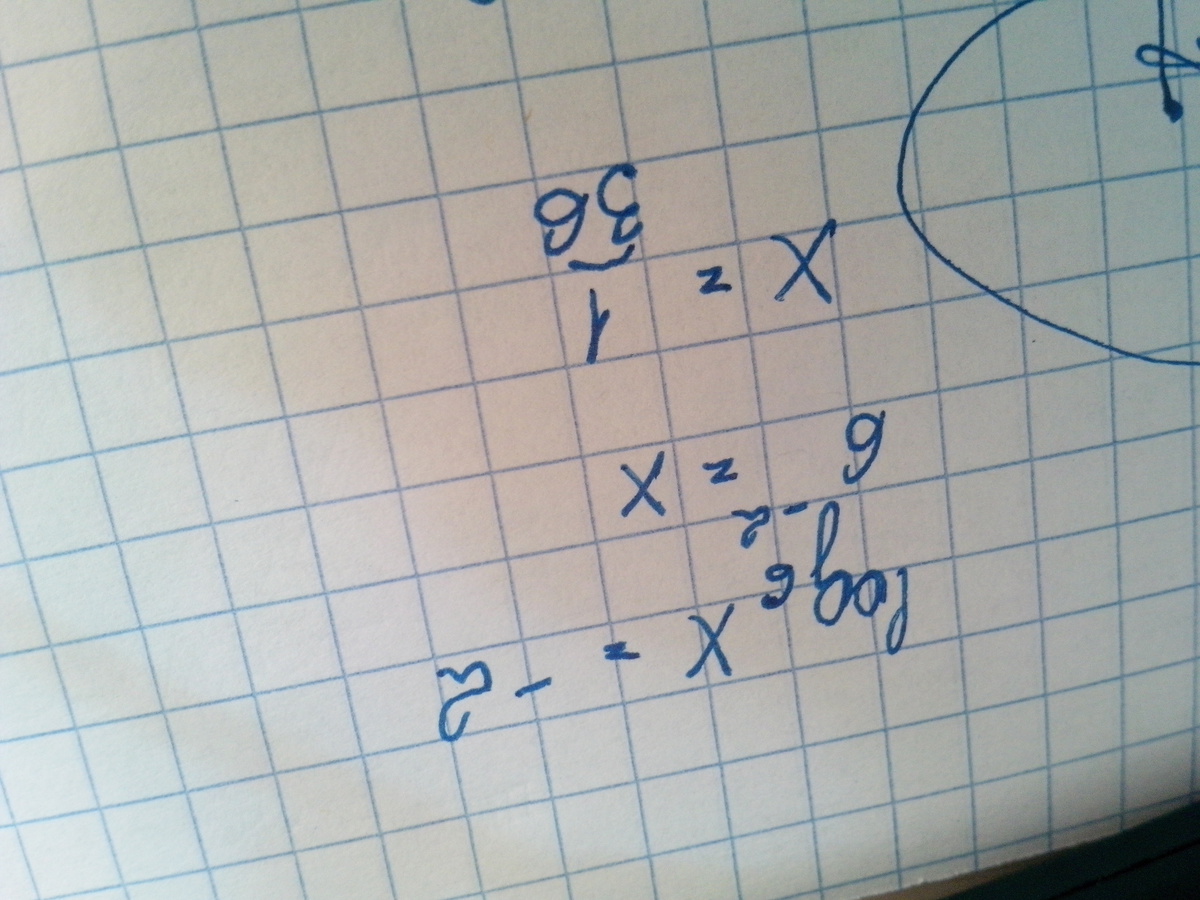 log₆ x = -2
6⁻² = x
x = 1/36